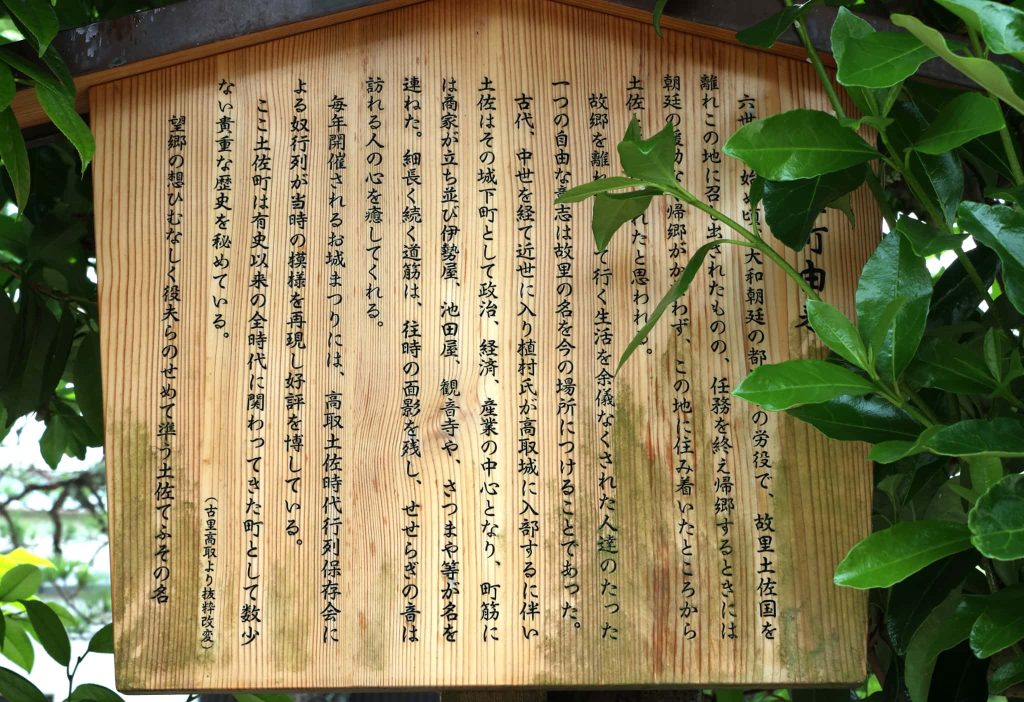 町由来
六世 始め頃、大和朝廷の都 の労役で、故里土佐国を
離れこの地に召し出されたものの、任務を終え帰郷するときには
朝廷の援助なく帰郷がかなわず、この地に住み着いたところから
土佐 れたと思われる。
故郷を離れ て行く生活を余儀なくされた人達のたった
一つの自由な意志は故里の名を今の場所につけることであった。
古代、中世を経て近世に入り植村氏が高取城に入部するに伴い
土佐はその城下町として政治、経済、産業の中心となり、町筋に
は商家が立ち並び伊勢屋、池田屋、観音寺や、さつまや等が名を
連ねた。細長く続く道筋は、往時の面影を残し、せせらぎの音は
訪れる人の心を癒してくれる。
毎年開催されるお城まつりには、高取土佐時代行列保存会に
よる奴行列が当時の模様を再現し好評を博している。
ここ土佐町は有史以来の全時代に関わってきた町として数少
ない貴重な歴史を秘めている。
(古里高取より抜粋改変)
望郷の想ひむなしく役夫らのせめて準う土佐てふその名